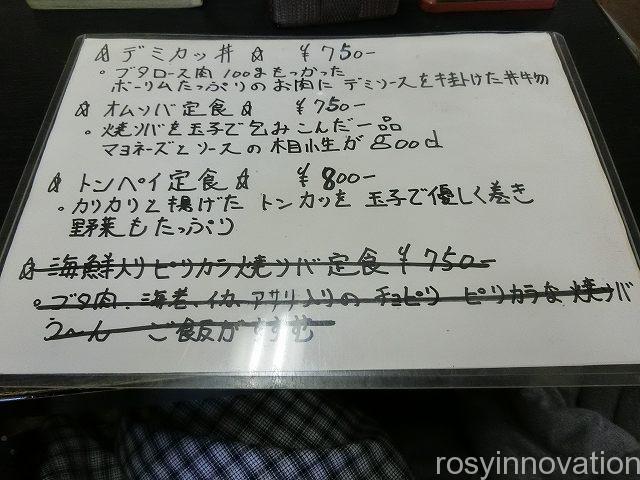 ☆ デミカツ丼 ☆ ¥750-
。ブタロース肉100gもつかった
ボーリムたっぷりのお肉に デミソースを掛けた丼物
☆ オムソバ定食 ☆ ¥750-
。焼ソバを玉子で包みこんだ一品
マヨネーズとソースの相性がgood
☆ トンペイ定食 ☆ ¥800-
。カリカリと揚げた トンカツを 玉子で優しく巻き
野菜もたっぷり
☆ 海鮮入りピリカラ焼ソバ定食 ¥750-
。ブタ肉、海老、イカ、アサリ入りの チョピリ ピリカラな焼ソバ
う~ん ご飯がすすむ
rosyinnovation